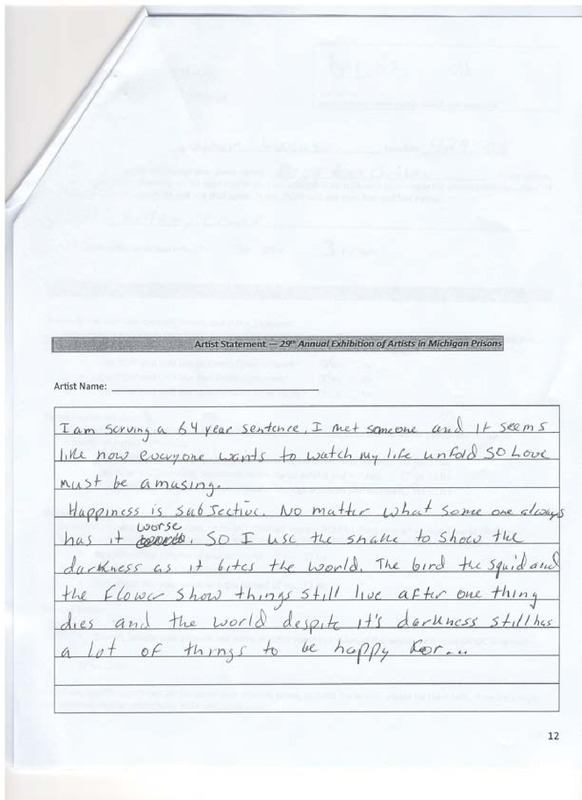 Artist Statement — 29th Annual Exhibition of Artists in Michigan Prisons
Artist Name:
I am serving a 64 year sentence. I met someone and it seems
like now everyone wants to watch my life unfold so Love
must be amusing.
Happiness is subjective. No matter what some one always
has it worse. SO I use the snake to show the
darkness as it bites the world. The bird the squid and
the flower show things still live after one thing
dies and the world despite it's darkness still has
a lot of things to be happy for...
12